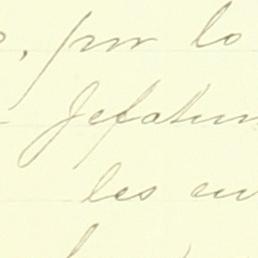 , por lo
Jefatur
les en